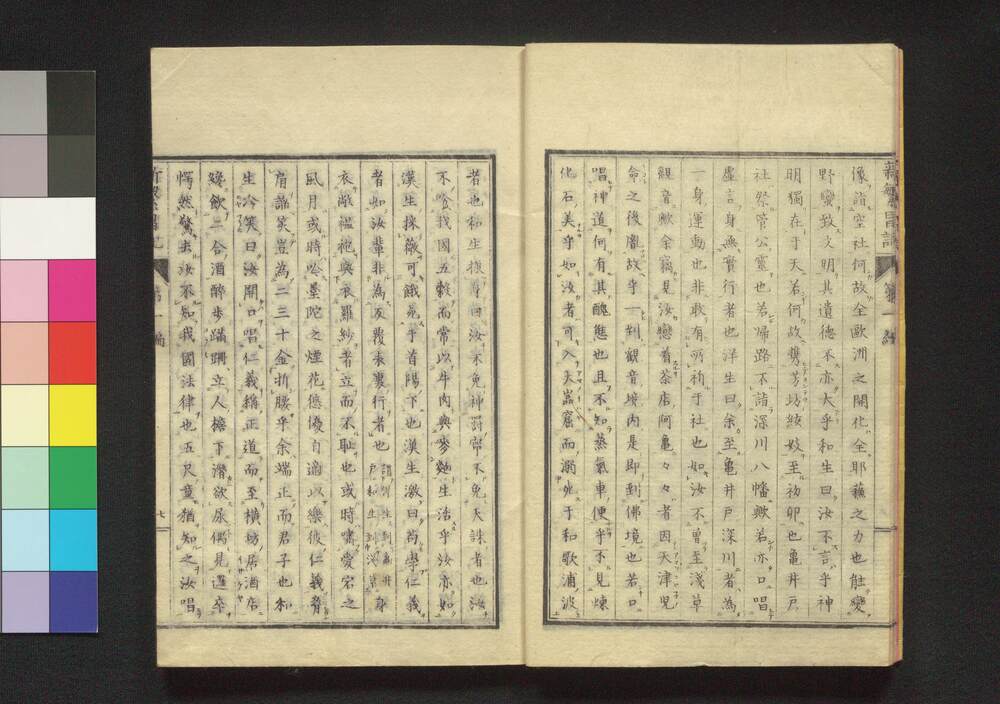 像詣空社何故全歐洲之開化全耶蘓之力也能變
野蠻致文明其遺德不亦大乎和生曰汝不言乎神
明獨在于天若何故携芳坊絃妓至初卯也亀井戸
社祭管公靈也若帰路不詣深川八幡歟若亦口唱
虛言身無實行者也洋生曰余至亀井戸深川者為
一身運動也非敢有所祈于社也如汝不曽至淺草
觀音歟余竊見汝戀着茶店阿亀々々者因天津児
命之後胤故乎一到觀音境內是即到佛境也若口
唱神道何有其醜態也且不知蒸氣車便乎不見煉
化石美乎如汝者可入天蟲窟而溺死于和歌浦波
者也和生振身曰汝不免神罸寧不免天誅者也汝
不喰我国五穀而常以牛肉與麥麵生活乎汝亦如
漢生採薇可餓死乎首陽下也漢生激曰苟學仁義
者如汝輩非為反覆表裏行者也
謂洋生到亀井戸和生到淺草
身
衣敝縕袍與衣羅紗者立而不恥也或時嘯愛宕之
風月或時吟墨陀之煙花優優自適以樂彼仁義脅
肩諂笑豈為二三十金折腰乎余端正而君子也和
生冷笑曰汝開口唱仁義稱正道而至橫坊居酒店
纔飲二合酒醉步蹣跚立人檐下潛欲尿偶見邏卒
愕然驚去汝不知我國法律也五尺童猶知之汝唱
第一編
七